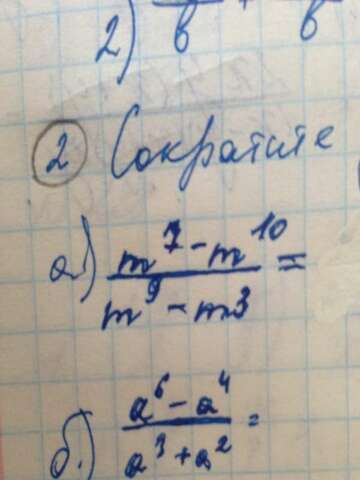 2) — + —
в в
② Сократите
а) (m⁷ - m¹⁰)/(m⁹ - m³) =
б) (a⁶ - a⁴)/(a³ + a²) =